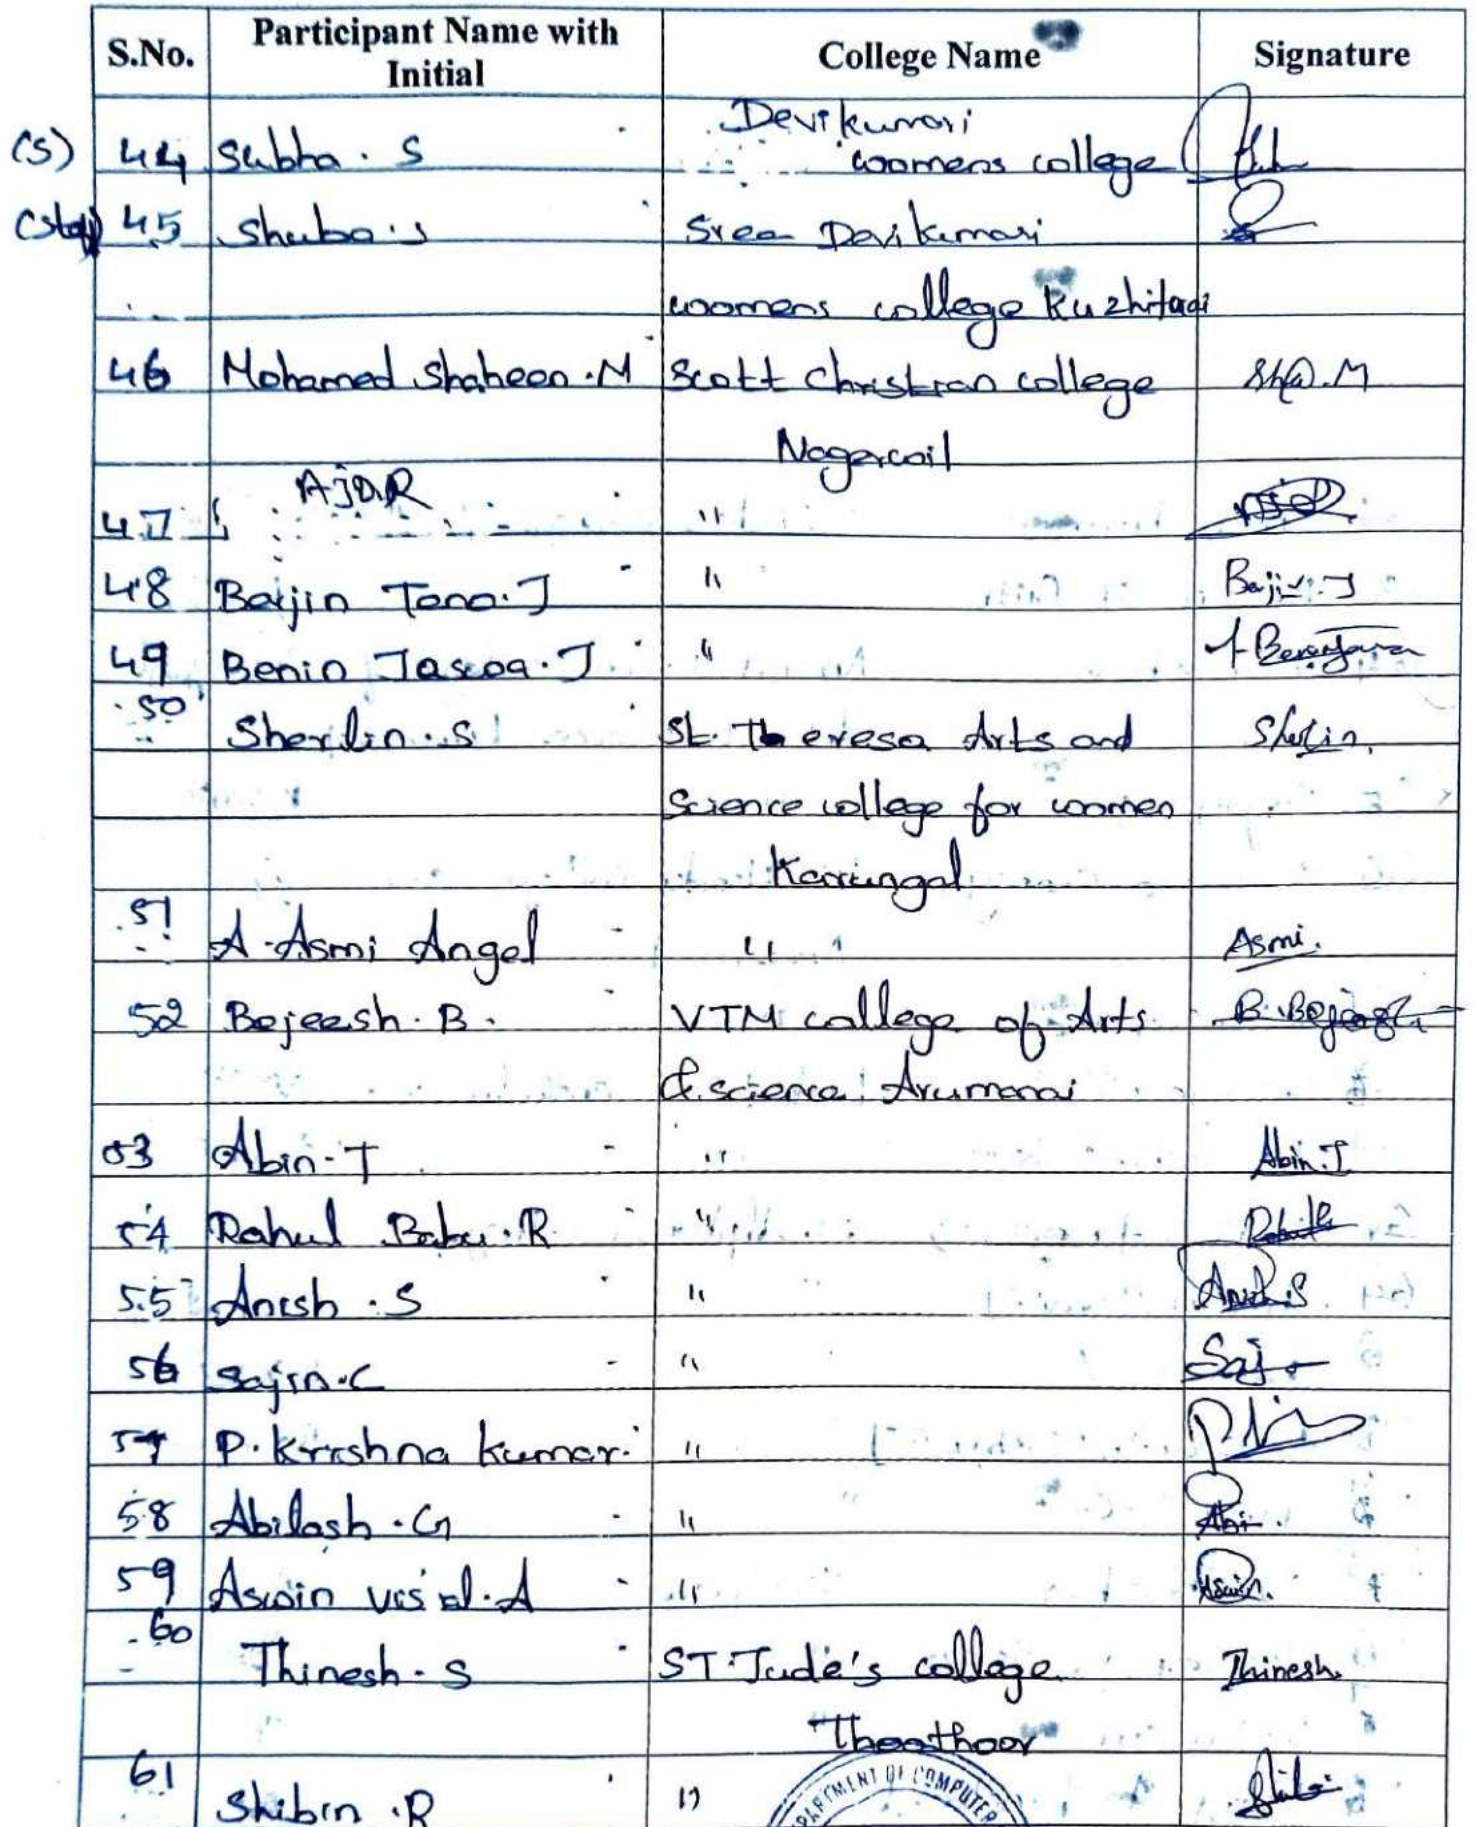 S.No. Participant Name with Initial College Name Signature
Devikumari
(S) 44 Subha. S womens college
(Staff) 45 Shuba.s Sree Devikumari
womens college Kuzhitadi
46 Mohamed Shaheen.M Scott Christian college Sha.M
Nagercoil
47 Ajo.R "
48 Barjin Tono.J "
49 Benin Jascoa.J "
50 Sherlin.S St. Theresa Arts and Sherlin.
Science college for women
Karungal
51 A.Asmi Angel " Asmi.
52 Bejeesh.B. VTM college of Arts B.Bejeesh
& science Arumanai
53 Abin.T " Abin.T
54 Rahul Babu.R "
55 Anish.S " Anish.S
56 Sajin.C " Saj
57 P.Krishna Kumar. "
58 Abilash.G " Abi.
59 Aswin visal.A " Aswin.
60 Thinesh.S ST.Jude's college Thinesh.
Thoothoor
61 Shibin.R "
DEPARTMENT OF COMPUTER